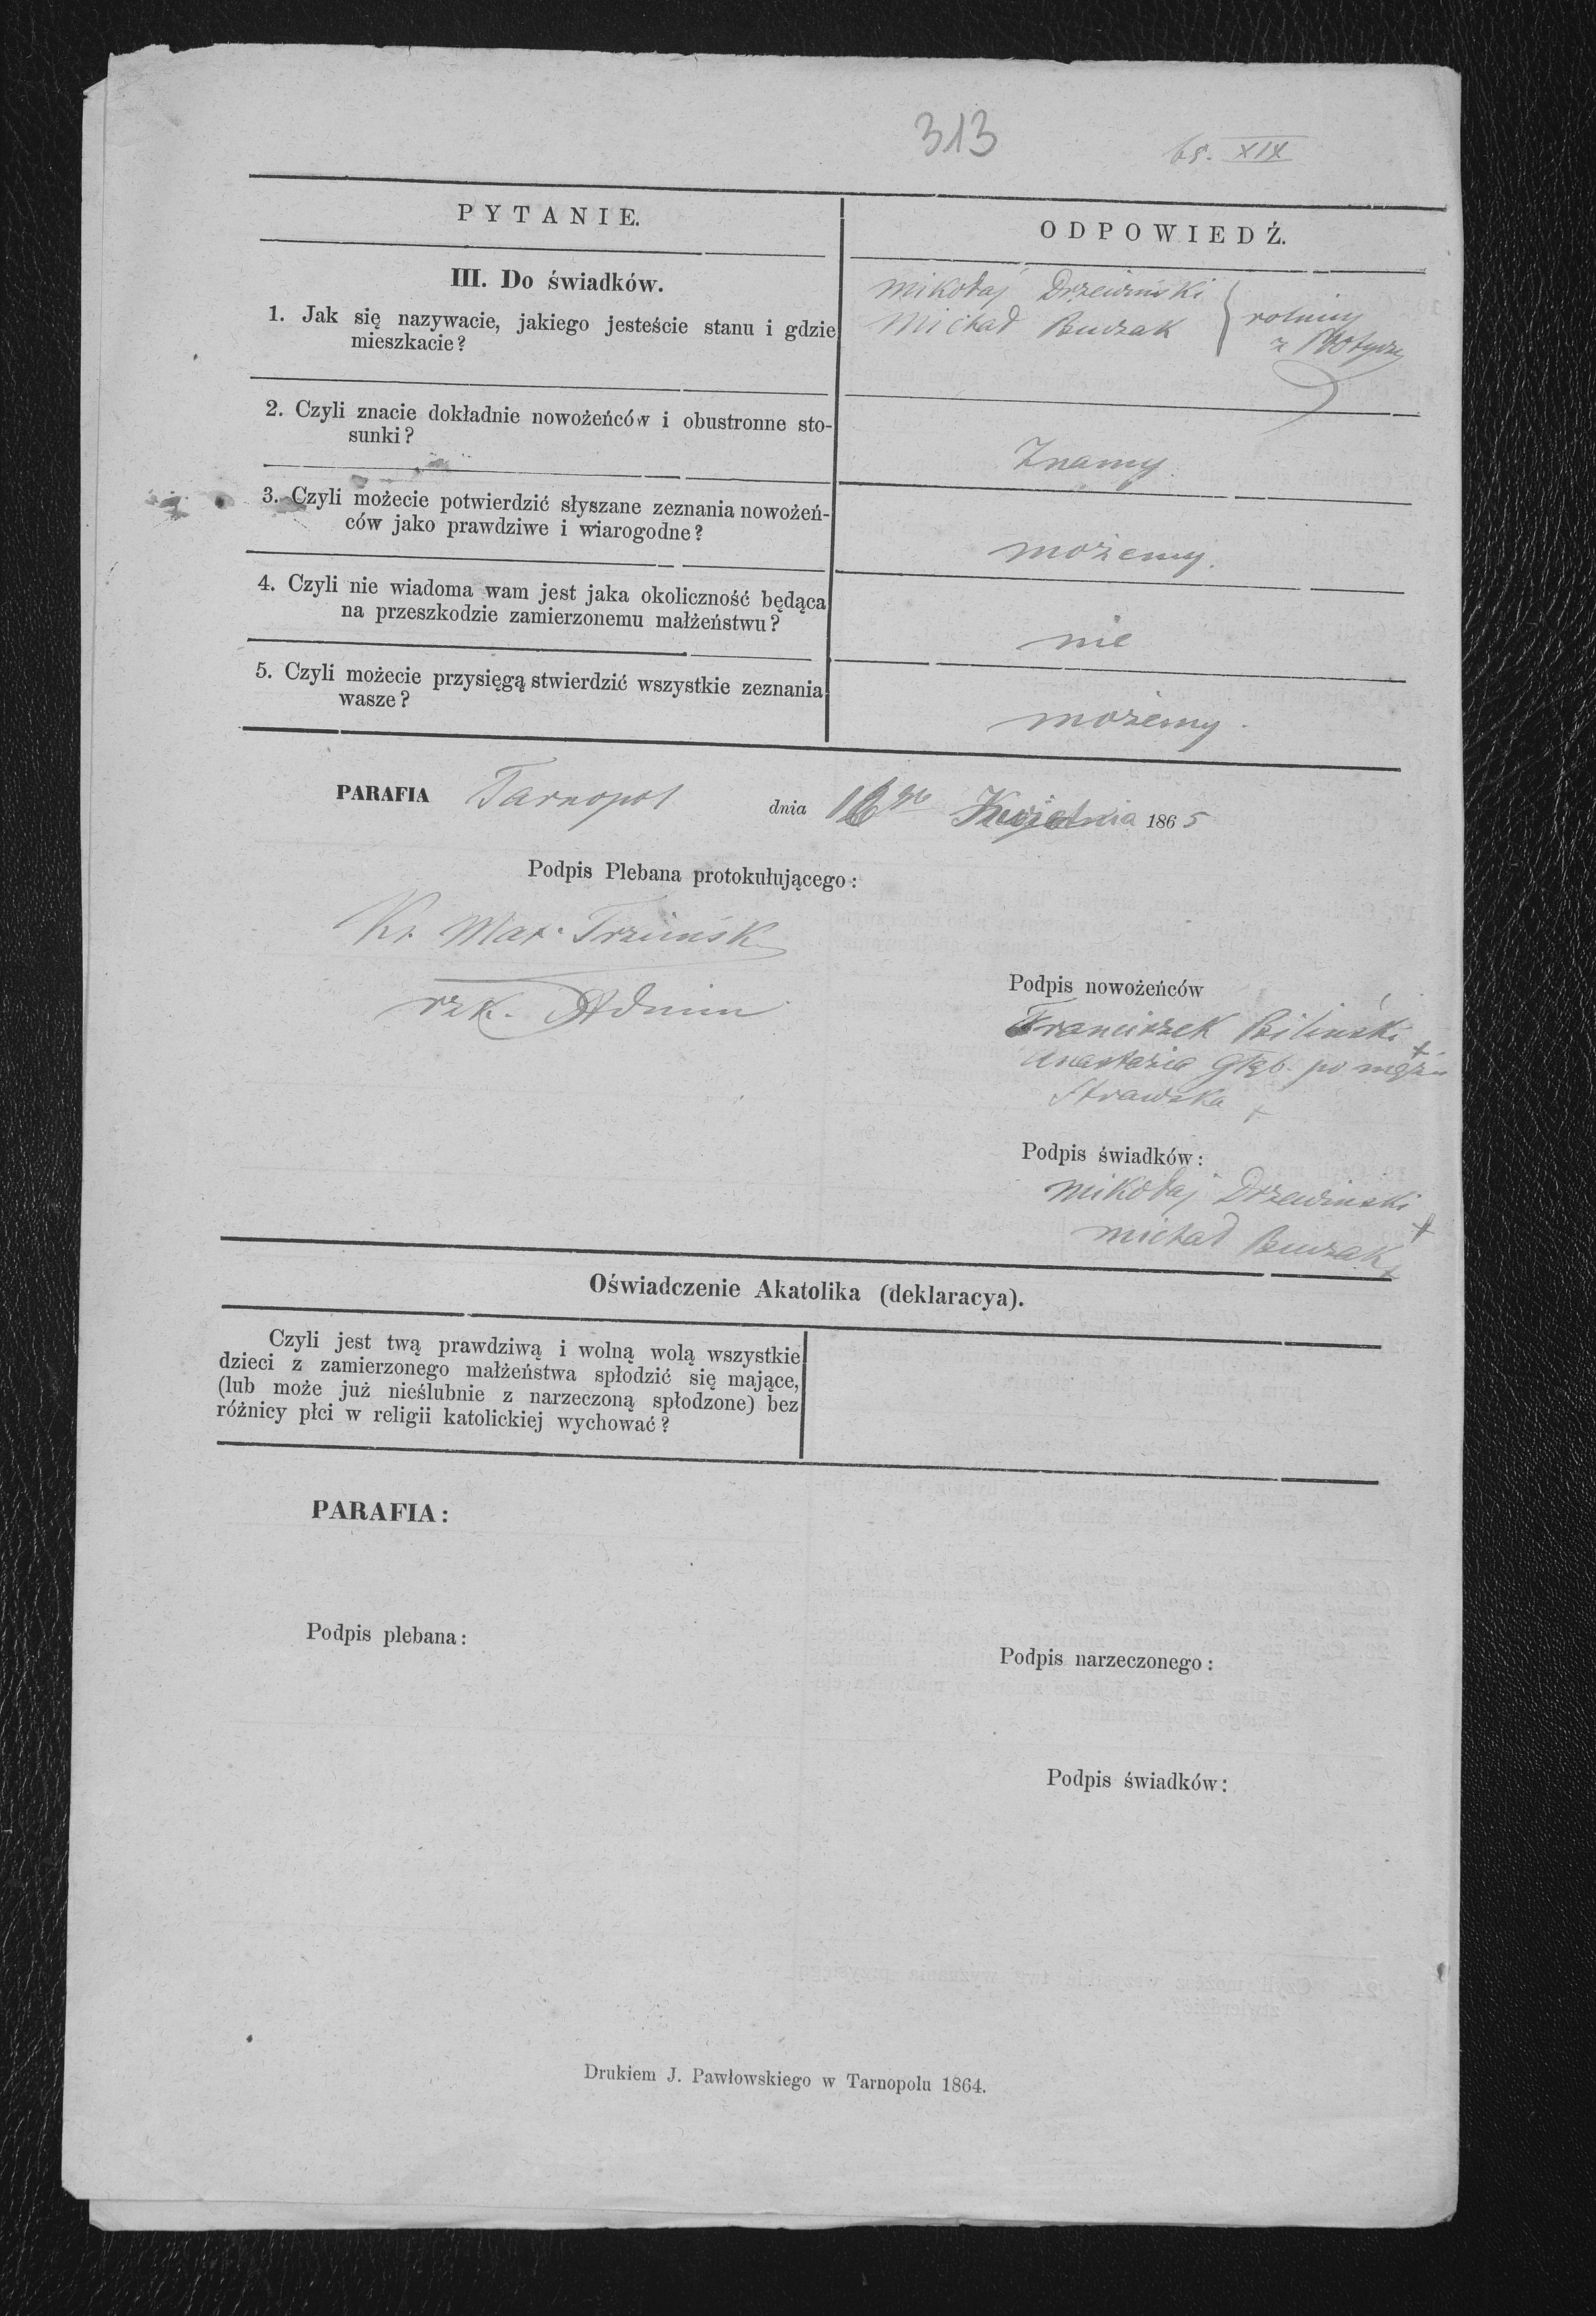 313
bs. XIX
PYTANIE.
ODPOWIEDŹ.
III. Do świadków.
1. Jak się nazywacie, jakiego jesteście stanu i gdzie
mieszkacie?
Mikołaj Drzewiński
Michał
rolnicy
z
2. Czyli znacie dokładnie nowożeńców i obustronne sto-
sunki?
Znamy.
3. Czyli możecie potwierdzić słyszane zeznania nowożeń-
ców jako prawdziwe i wiarogodne?
możemy.
4. Czyli nie wiadoma wam jest jaka okoliczność będąca
na przeszkodzie zamierzonemu małżeństwu?
nie
5. Czyli możecie przysięgą stwierdzić wszystkie zeznania
wasze?
możemy.
PARAFIA Tarnopol dnia Kwietnia 1865
Podpis Plebana protokułującego:
Ks. Max.
rzk. Admin
Podpis nowożeńców
Franciszek Biliński +
Anastazia Głąb. po mężu
Strawska +
Podpis świadków:
Mikołaj Drzewinski +
Michał +
Oświadczenie Akatolika (deklaracya).
Czyli jest twą prawdziwą i wolną wolą wszystkie
dzieci z zamierzonego małżeństwa spłodzić się mające,
(lub może już nieślubnie z narzeczoną spłodzone) bez
różnicy płci w religii katolickiej wychować?
PARAFIA:
Podpis plebana:
Podpis narzeczonego:
Podpis świadków:
Drukiem J. Pawłowskiego w Tarnopolu 1864.